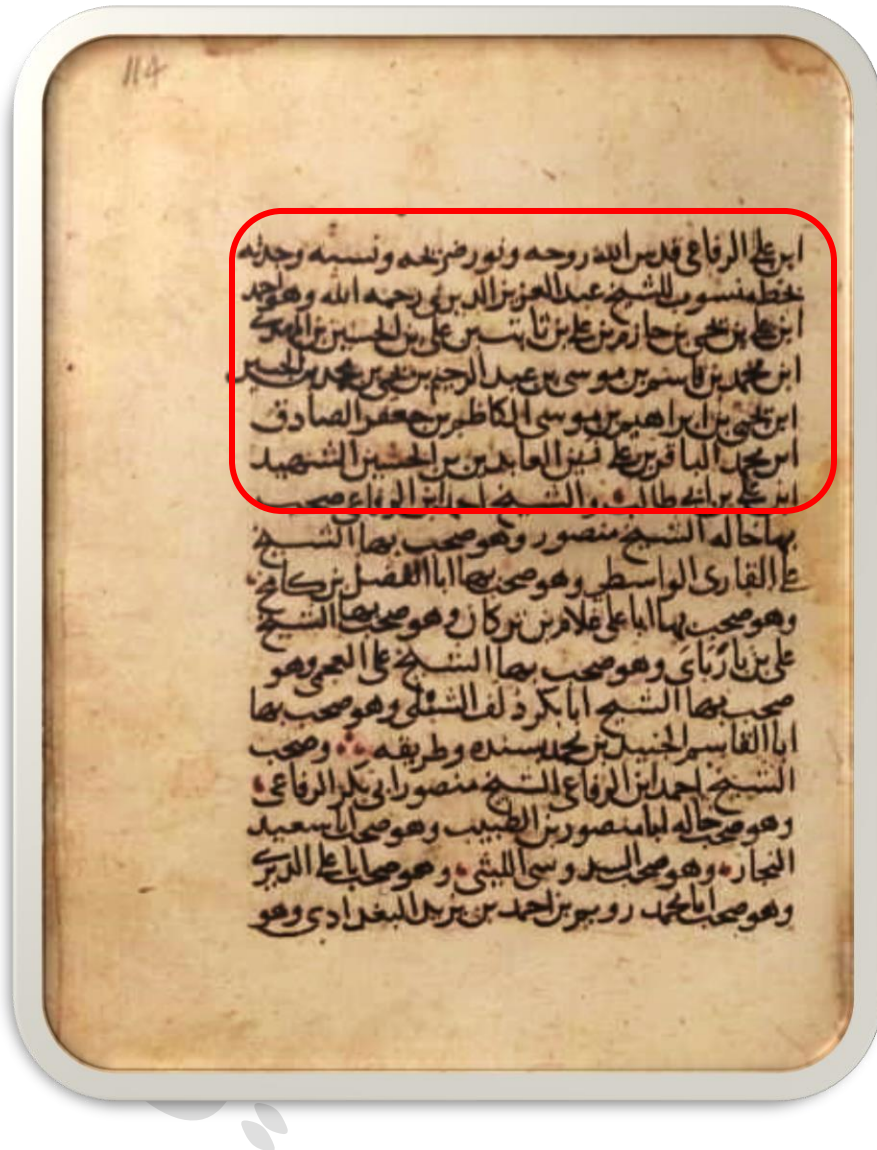 114
ابن علي الرفاعي قدس الله روحه ونور ضريحه ونسبه وجدته
بخط منسوب للشيخ عبد العزيز الديريني رحمه الله وهو احمد
ابن علي بن يحيى بن حازم بن علي بن ثابت بن علي بن الحسين بن المهدي
ابن محمد بن قاسم بن موسى بن عبد الرحيم بن يحيى بن محمد بن الحسين
ابن يحيى بن ابراهيم بن موسى الكاظم بن جعفر الصادق
ابن محمد الباقر بن علي زين العابدين بن الحسين الشهيد
ابن علي بن ابي طالب والشيخ احمد ابن الرفاعي صحب
بها خاله الشيخ منصور وهو صحب بها الشيخ
علي القاري الواسطي وهو صحب بها ابا الفضل بن كامخ
وهو صحب بها ابا علي غلام بن تركان وهو صحب بها الشيخ
علي بن بارباي وهو صحب بها الشيخ علي العجمي وهو
صحب بها الشيخ ابا بكر دلف الشبلي وهو صحب بها
ابا القاسم الجنيد بن محمد بسنده وطريقه وصحب
الشيخ احمد ابن الرفاعي الشيخ منصور ابي بكر الرفاعي
وهو صحب خاله ابا منصور بن الطيب وهو صحب ابا سعيد
النجار وهو صحب السيد وسى الليثي وهو صحب ابا علي
وهو صحب ابا محمد رويم بن احمد بن يزيد البغدادي وهو